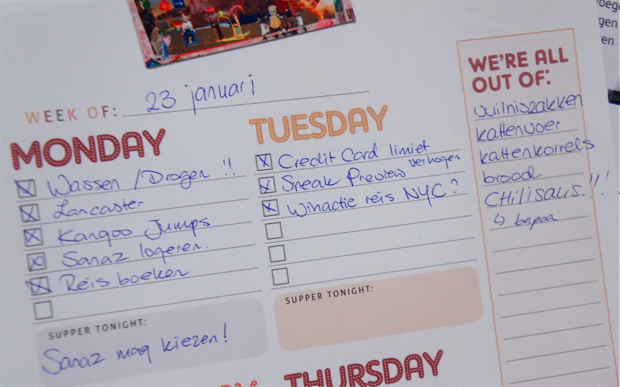 WEEK OF: 23 januari
MONDAY
Wassen / Drogen !!
Lancaster
Kangoo Jumps
Sanaz logeren.
Reis boeken
SUPPER TONIGHT:
Sanaz mag kiezen!
TUESDAY
Credit Card limiet
verhogen
Sneak Preview
Winactie reis NYC?
SUPPER TONIGHT:
THURSDAY
WE'RE ALL
OUT OF:
vuilniszakken
kattenvoer
kattenkorrels
brood
CHILISAUS!!!
oeg
gen
en